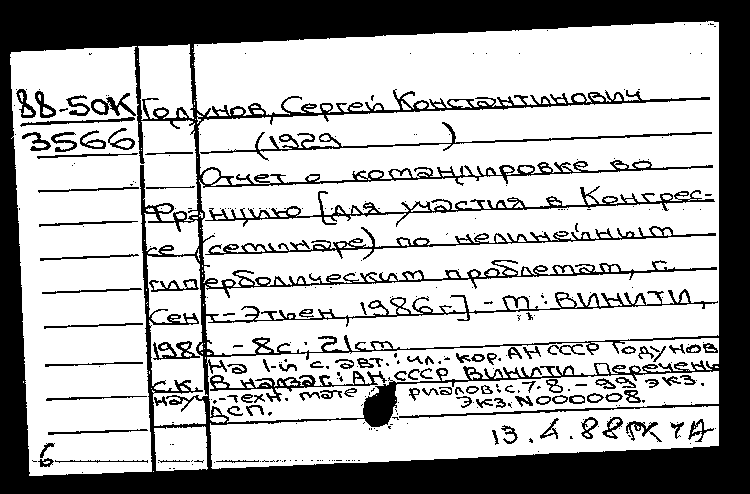 88-50К Годунов, Сергей Константинович
3566 (1929 )
Отчет о командировке во
Францию [для участия в Конгрес-
се (семинаре) по нелинейным
гиперболическим проблемам, г.
Сент-Этьен, 1986 г.]. - М.: ВИНИТИ,
1986. - 8с.; 21см.
На 1-й с. авт.: чл.-кор. АН СССР Годунов
С.К. В надзаг.: АН СССР, ВИНИТИ. Перечень
науч.-техн. мате риалов: с. 7-8. - 99 экз.
ДСП. Экз. N000008.
13.4.88
6